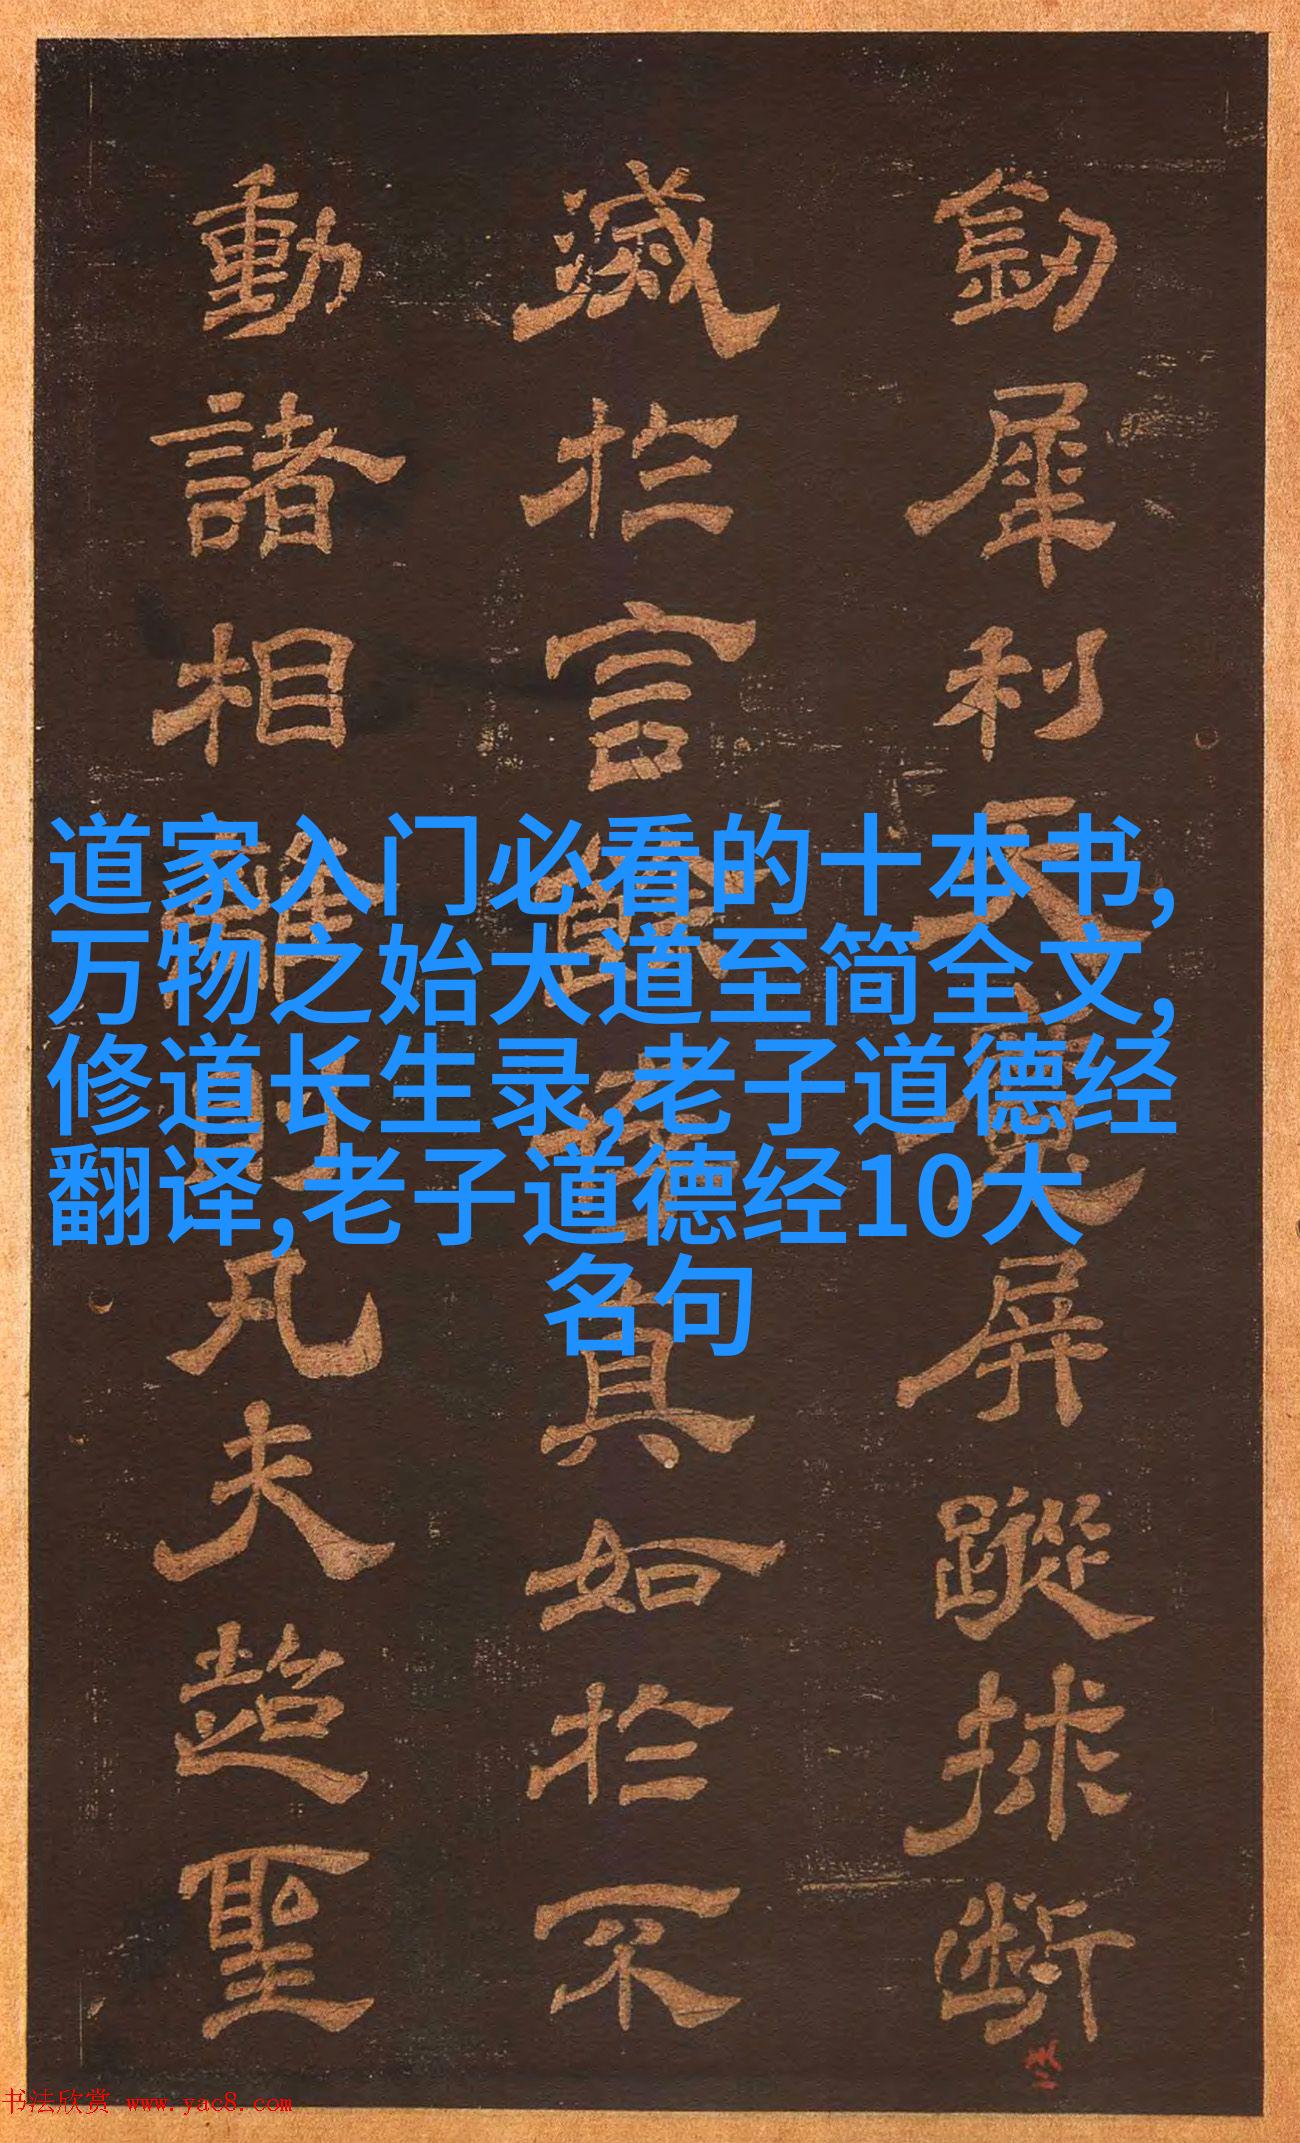 劒犀利
屏蹤排斷
滅於言
真如於不
動諸相
凡夫超聖
道家入门必看的十本书,
万物之始大道至简全文,
修道长生录,老子道德经
翻译,老子道德经10大
名句
书法欣赏 www.yac8.com